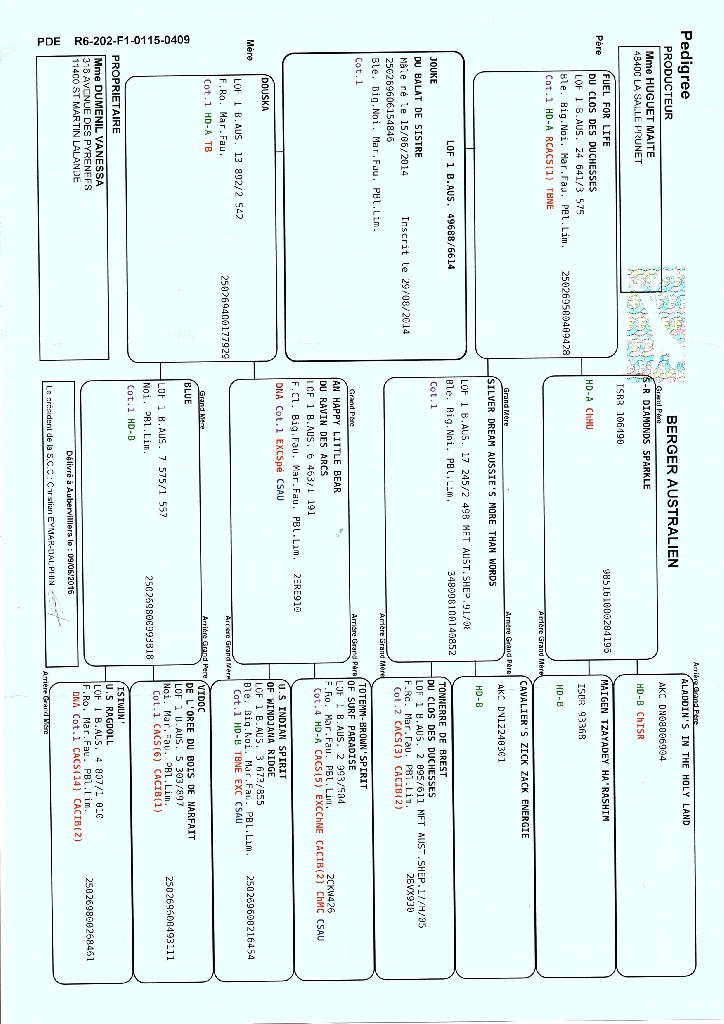 Pedigree
BERGER AUSTRALIEN
PRODUCTEUR
Mme HUGUET MAITE
48400 LA SALLE PRUNET
Père
FUEL FOR LIFE
DU CLOS DES DUCHESSES
LOF 1 B.AUS. 24 641/3 575
Ble. Big.Noi. Mar.Fau. PBl.Lim.
250269500409428
Cot.1 HD-A RCACS(1) TBNE
JOUKE
LOF 1 B.AUS. 49688/6614
DU BALAT DE SISTRE
Mâle né le 15/06/2014 Inscrit le 29/08/2014
250269606154846
Ble. Big.Noi. Mar.Fau. PBl.Lim.
Cot.1
Mère
DOUSKA
LOF 1 B.AUS. 13 892/2 542
250269400177929
F.Ro. Mar.Fau.
Cot.1 HD-A TB
PROPRIETAIRE
Mme DUMENIL VANESSA
316 AVENUE DES PYRENEES
11400 ST MARTIN LALANDE
PDE R6-202-F1-0115-0409
Grand Père
S-R DIAMONDS SPARKLE
ISBR 106490
985161000204196
HD-A ChMU
Grand Mère
SILVER DREAM AUSSIE'S MORE THAN WORDS
LOF 1 B.AUS. 17 245/2 498 MET AUST.SHEP.91/08
Ble. Big.Noi. PBl.Lim.
348098100140852
Cot.1
Grand Père
AN HAPPY LITTLE BEAR
DU RAVIN DES ARCS
LOF 1 B.AUS. 6 463/1 191
F.Cl. Big.Fau. Mar.Fau. PBl.Lim. 2ERE910
DNA Cot.1 EXCSpé CSAU
Grand Mère
BLUE
LOF 1 B.AUS. 7 575/1 557
Noi. PBl.Lim.
250269800993818
Cot.1 HD-B
Délivré à Aubervilliers le : 09/06/2016
Le président de la S.C.C : Christian EYMAR-DAUPHIN
Arrière Grand Père
ALADDIN'S IN THE HOLY LAND
AKC DN08006904
HD-B ChISR
Arrière Grand Mère
MAIGEN TZAYADEY HA'RASHIM
ISBR 93368
HD-B
Arrière Grand Père
CAVALIER'S ZICK ZACK ENERGIE
AKC DN12240301
HD-B
Arrière Grand Mère
TONNERRE DE BREST
DU CLOS DES DUCHESSES
LOF 1 B.AUS. 2 095/611 MET AUST.SHEP.17/H/05
F.Ro. Mar.Fau. PBl.Lim. 2BVX930
Cot.2 CACS(3) CACIB(2)
Arrière Grand Père
TOTEMF BROWN'SPIRIT
OF SURF PARADISE
LOF 1 B.AUS. 2 993/504
F.Ro. Mar.Fau. PBl.Lim. 2CKW426
Cot.4 HD-A CACS(5) EXCChNE CACIB(2) ChMC CSAU
Arrière Grand Mère
U.S INDIAN SPIRIT
OF WINDJANA RIDGE
LOF 1 B.AUS. 3 673/855
Ble. Big.Noi. Mar.Fau. PBl.Lim.
250269600216454
Cot.1 HD-B TBNE EXC CSAU
Arrière Grand Père
VIDOC
DE L'OREE DU BOIS DE NARFAIT
LOF 1 B.AUS. 5 303/897
Noi. Mar.Fau. PBl.Lim.
250269600493111
Cot.1 CACS(6) CACIB(1)
Arrière Grand Mère
ISINUN'
U.S RAGDOLL
LOF 1 B.AUS. 4 807/1 010
F.Ro. Mar.Fau. PBl.Lim.
250269800268461
DNA Cot.1 CACS(14) CACIB(2)